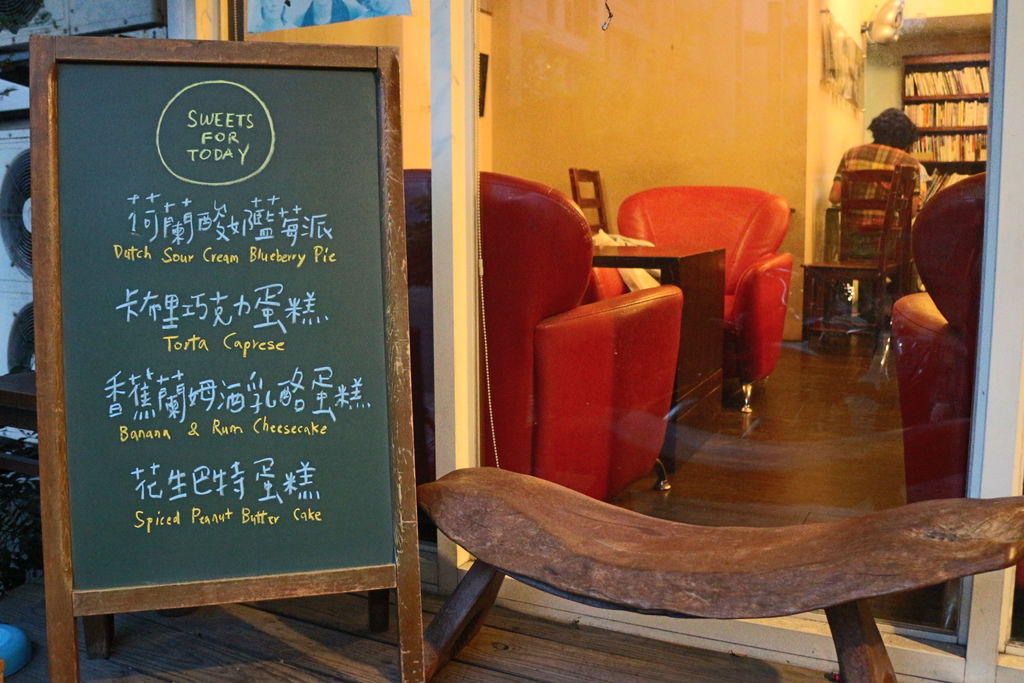 SWEETS
FOR
TODAY
荷蘭酸奶藍莓派
Dutch Sour Cream Blueberry Pie
卡布里巧克力蛋糕
Torta Caprese
香蕉蘭姆酒乳酪蛋糕
Banana & Rum Cheesecake
花生巴特蛋糕
Spiced Peanut Butter Cake